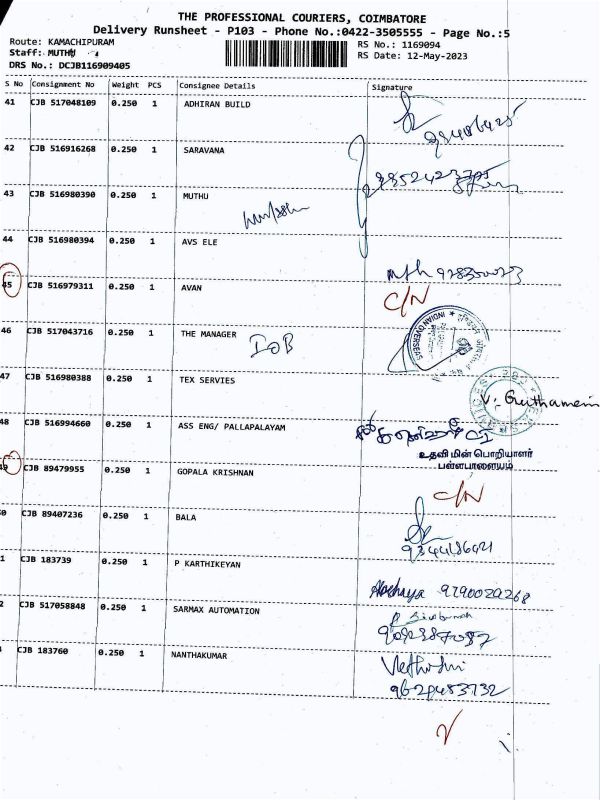 THE PROFESSIONAL COURIERS, COIMBATORE
Delivery Runsheet - P103 - Phone No.:0422-3505555 - Page No.:5
Route: KAMACHIPURAM
RS No.: 1169094
Staff: MUTHU
RS Date: 12-May-2023
DRS No.: DCJB116909405
S No Consignment No Weight PCS Consignee Details Signature
41 CJB 517048109 0.250 1 ADHIRAN BUILD
42 CJB 516916268 0.250 1 SARAVANA
43 CJB 516980390 0.250 1 MUTHU
44 CJB 516980394 0.250 1 AVS ELE
45 CJB 516979311 0.250 1 AVAN C/N
46 CJB 517043716 0.250 1 THE MANAGER IOB
INDIAN OVERSEAS
47 CJB 516980388 0.250 1 TEX SERVIES
48 CJB 516994660 0.250 1 ASS ENG/ PALLAPALAYAM
உதவி மின் பொறியாளர்
பள்ளபாளையம்
49 CJB 89479955 0.250 1 GOPALA KRISHNAN C/N
0 CJB 89407236 0.250 1 BALA
1 CJB 183739 0.250 1 P KARTHIKEYAN
9790029268
2 CJB 517058848 0.250 1 SARMAX AUTOMATION
CJB 183760 0.250 1 NANTHAKUMAR
9629483732